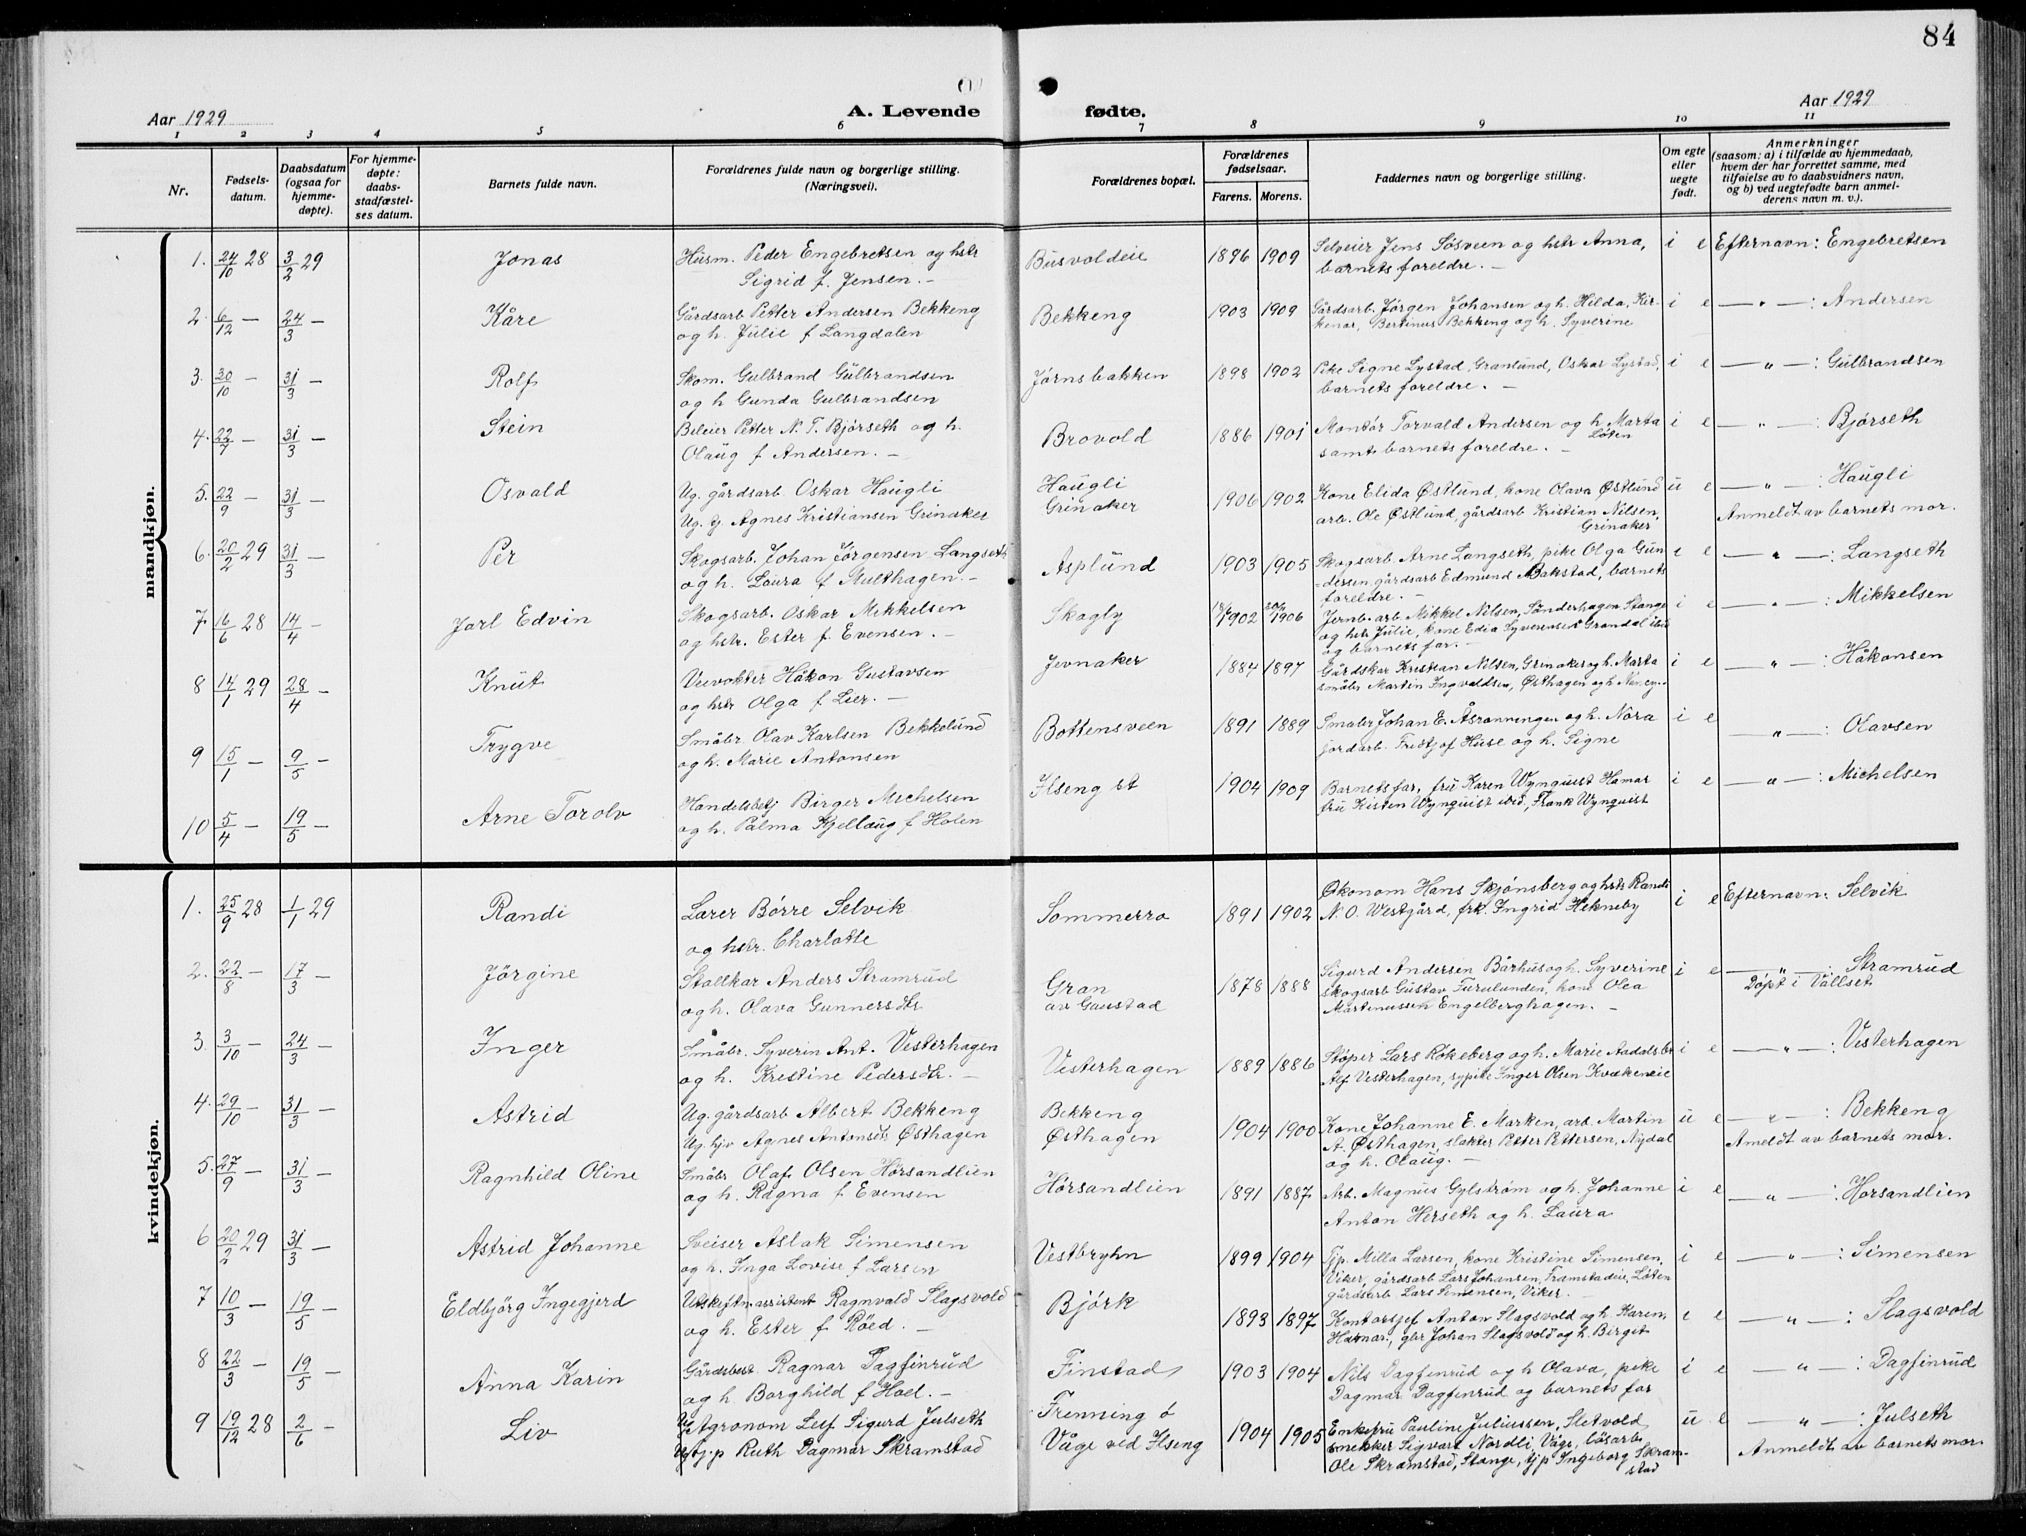 84
Aar 1929
A. Levende
fødte.
Aar 1929
1 2 3 4 5 6 7 8 9 10 11
Nr.
Fødsels-
datum.
Daabsdatum
(ogsaa for
hjemme-
døpte).
For hjemme-
døpte:
daabs-
stadfæstel-
ses datum.
Barnets fulde navn.
Forældrenes fulde navn og borgerlige stilling.
(Næringsvei).
Forældrenes bopæl.
Forældrenes
fødselsaar.
Farens. Morens.
Faddernes navn og borgerlige stilling.
Om egte
eller
uegte
født.
Anmerkninger
(saasom: a) i tilfælde av hjemmedaab,
hvem der har forrettet samme, med
tilføielse av to daabsvidners navn,
og b) ved uegtefødte barn anmel-
derens navn m. v.).
mandkjøn.
1. 24/10 28 3/2 29 Jonas Husm. Peder Engebretsen og hstr Busvoldeie 1896 1909 Selveier Jens Løsveen og hstr Anna, i e Efternavn: Engebretsen
Sigrid f. Jensen. — barnets foreldre. —
2. 6/12 — 24/3 — Kåre Gårdsarb Petter Andersen Bekkeng Bekkeng 1903 1909 Gårdsarb. Jørgen Johansen og h. Hilda, Kir- i e — " — : Andersen
og h. Julie f Langdalen kenar, Bertinus Bekkeng og h. Syverine
3. 30/10 — 31/3 — Rolf Skom. Gulbrand Gulbrandsen Jørnsbakken 1898 1902 Pike Signe Lystad, Granlund, Oskar Lystad, i e — " — : Gulbrandsen
og h Gunda Gulbrandsen barnets foreldre. —
4. 22/7 — 31/3 — Stein Bileier Petter N. T. Bjørseth og h. Brovold 1886 1901 Montør Torvald Andersen og h Marta i e — " — : Bjørseth
Olaug f Andersen. — Løten
samt barnets foreldre. —
5. 22/9 — 31/3 — Osvald Ug. gårdsarb. Oskar Haugli Haugli 1906 1902 Kone Elida Østlund, kone Olava Østlund u e — " — : Haugli
Ug. Agnes Kristiansen Grinaker Grinaker arb. Ole Østlund, gårdsarb Kristian Nilsen, Anmeldt av barnets mor.
Grinaker
6. 20/2 29 31/3 — Per Skogsarb. Johan Jørgensen Langseth Asplund 1903 1905 Skogsarb. Arne Langseth, pike Olga Gun- e e — " — : Langseth
og h. Laura f Multhagen. — dersen, gårdsarb Edmund Bakstad, barnets
foreldre. —
7. 16/6 28 14/4 — Jarl Edvin Skogsarb. Oskar Mikkelsen Skogly 1902 1906 Jernb. arb Mikkel Nilsen, Sønderhagen Stange i e — " — : Mikkelsen
og hstr. Ester f. Evensen. — og hstr Julie, kone Edia Syversen Grandal ibid
og barnets far. —
8 14/1 29 28/4 — Knut Veivokter Håkon Gustavsen Jevnaker 1884 1897 Kristian Nilsen, Grinaker og h. Marta i e — " — : Håkonsen
og hstr Olga f Lier. — småbr Martin Ingvaldsen, Østhagen og h Nancy. —
9 15/1 — 9/5 — Trygve Småbr Olav Karlsen Bekkelund Bottensveen 1891 1889 Småbr Johan E. Åsrønningen og h. Nora i e — " — : Olavsen
og h. Marie Antonsen jordarb. Fridtjof Huse og h. Signe
10 5/4 — 19/5 — Arne Torolv Handelsbetj Birger Michelsen Ilseng st 1904 1909 Barnets far, fru Karen Wynquist Hamar i e — " — : Michelsen
og h. Palma Kjellaug f Holen fru Kisten Wynquist ibid, Frank Wynquist
kvindekjøn.
1. 25/9 28 1/1 29 Randi Lærer Børre Selvik Sommerro 1891 1902 Økonom Hans Skjønsberg og hstr Randi i e Efternavn: Selvik
og hstr. Charlotte N. O. Westgård, frk. Ingrid Hekneby
2. 22/8 — 17/3 — Jørgine Stallkar Anders Stramrud Gran 1878 1888 Sigurd Andersen Bårhus og h. Syverine i e — " — : Stramrud
og h. Olava Gunnersdtr av Gaustad skogsarb Gustav Furulunden, kone Olea Døpt i Vallset
Martinussen Engelberghagen. —
3. 3/10 — 24/3 — Inger Småbr. Syverin Ant. Vesterhagen Vesterhagen 1889 1886 Støper Lars Røkeberg og h. Marie Aadalsbr i e — " — : Vesterhagen
og h. Kristine Pedersdtr. — Alf Vesterhagen, sypike Inger Olsen Kvækeneie
4. 29/10 — 31/3 — Astrid Ug. gårdsarb Albert Bekkeng Bekkeng 1904 1900 Kone Johanne E. Marken, arb. Martin u e — " — : Bekkeng
Ug. hjv Agnes Antonsdtr Østhagen Østhagen A. Østhagen, slakter Petter Pettersen, Nydal Ameldt av barnets mor.
og h. Olaug. —
5. 27/9 — 31/3 — Ragnhild Oline Småbr Olaf Olsen Hørsandlien Hørsandlien 1891 1887 Arb. Magnus Gylstrøm og h. Johanne i e — " — : Horsandlien
og h. Ragna f Evensen Anton Herseth og h. Laura
6 20/2 29 31/3 — Astrid Johanne Sveiser Aslak Simensen Vestbryhn 1899 1904 Tjp. Milla Larsen, kone Kristine Simensen, i e — " — : Simensen
og h. Inga Lovise f Larsen Viker, gårdsarb Lars Johansen, Framstadeie, Løten
gårdsarb Lars Simensen, Viker. —
7 10/3 — 19/5 — Eldbjørg Ingegjerd Utskiftn.assistent Ragnvald Slagsvold Bjørk 1893 1897 Kontorsjef Anton Slagsvold og h. Karen, e e — " — : Slagsvold
og h. Ester f Røed. — Hamar, gbr Johan Slagsvold og h. Birgit
8 22/3 — 19/5 — Anna Karin Gårdsbest Ragnar Dagfinrud Finstad 1903 1904 Nils Dagfinrud og h Olava, pike i e — " — : Dagfinrud
og h Borghild f Hoel. — Dagmar Dagfinrud og barnets far
9 19/12 28 2/6 — Liv Ug Agronom Leif Sigurd Julseth Frenning ø 1904 1905 Enkefru Pauline Juliussen, Sletvold u e — " — : Julseth
Ug tj.p Ruth Dagmar Skramstad Våge ved Ilseng snekker Sigvart Nordli, Våge, løsarb. Anmeldt av barnets mor.
Ole Skramstad, Stange, tj p Ingeborg Skram-
stad